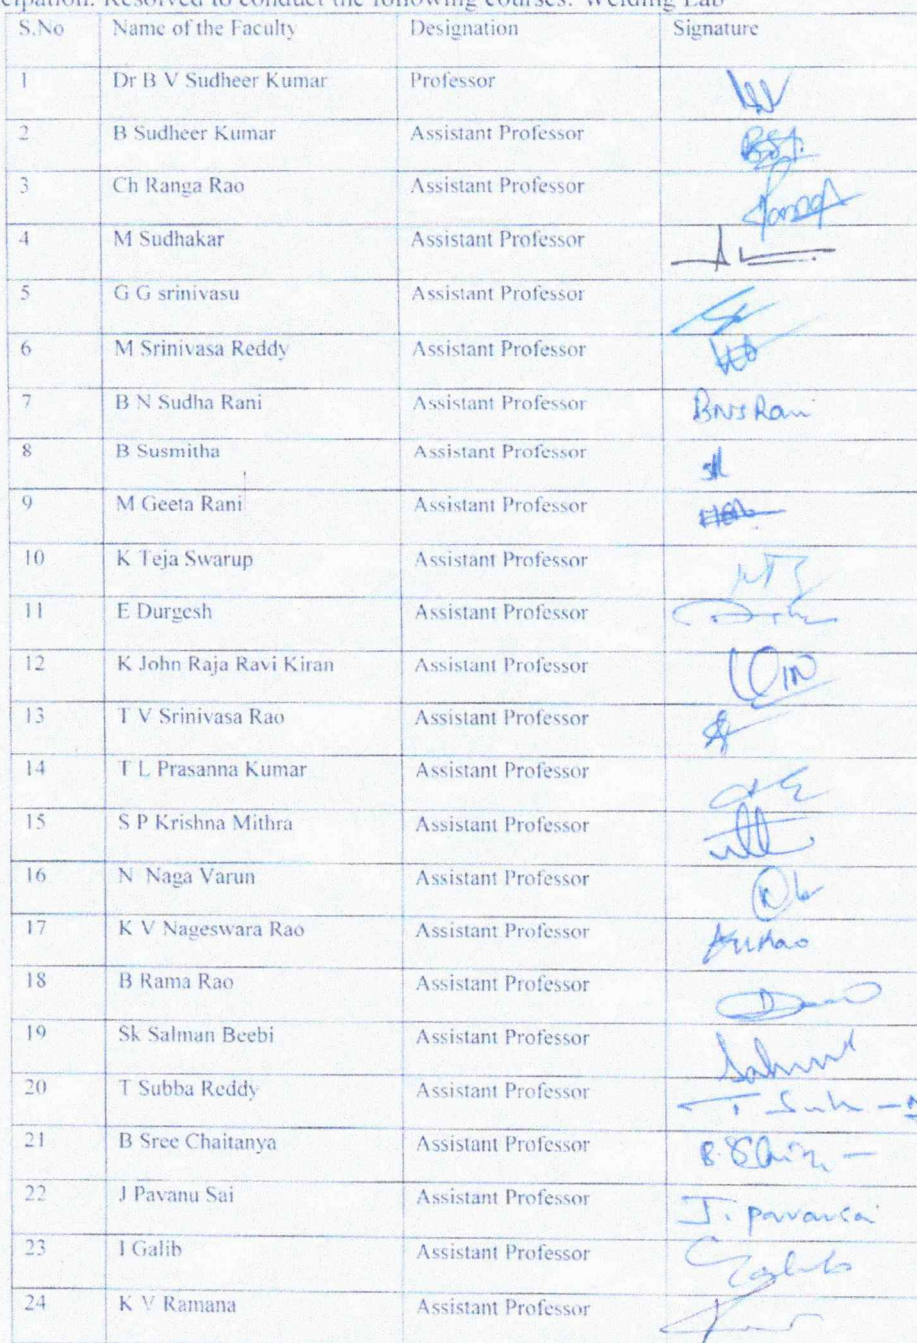 cipation. Resolved to conduct the following courses: Welding Lab
S.No Name of the Faculty Designation Signature
1 Dr B V Sudheer Kumar Professor
2 B Sudheer Kumar Assistant Professor
3 Ch Ranga Rao Assistant Professor
4 M Sudhakar Assistant Professor
5 G G srinivasu Assistant Professor
6 M Srinivasa Reddy Assistant Professor
7 B N Sudha Rani Assistant Professor BNS Rani
8 B Susmitha Assistant Professor
9 M Geeta Rani Assistant Professor
10 K Teja Swarup Assistant Professor
11 E Durgesh Assistant Professor
12 K John Raja Ravi Kiran Assistant Professor
13 T V Srinivasa Rao Assistant Professor
14 T L Prasanna Kumar Assistant Professor
15 S P Krishna Mithra Assistant Professor
16 N Naga Varun Assistant Professor
17 K V Nageswara Rao Assistant Professor
18 B Rama Rao Assistant Professor
19 Sk Salman Beebi Assistant Professor
20 T Subba Reddy Assistant Professor
21 B Sree Chaitanya Assistant Professor
22 J Pavanu Sai Assistant Professor
23 I Galib Assistant Professor
24 K V Ramana Assistant Professor